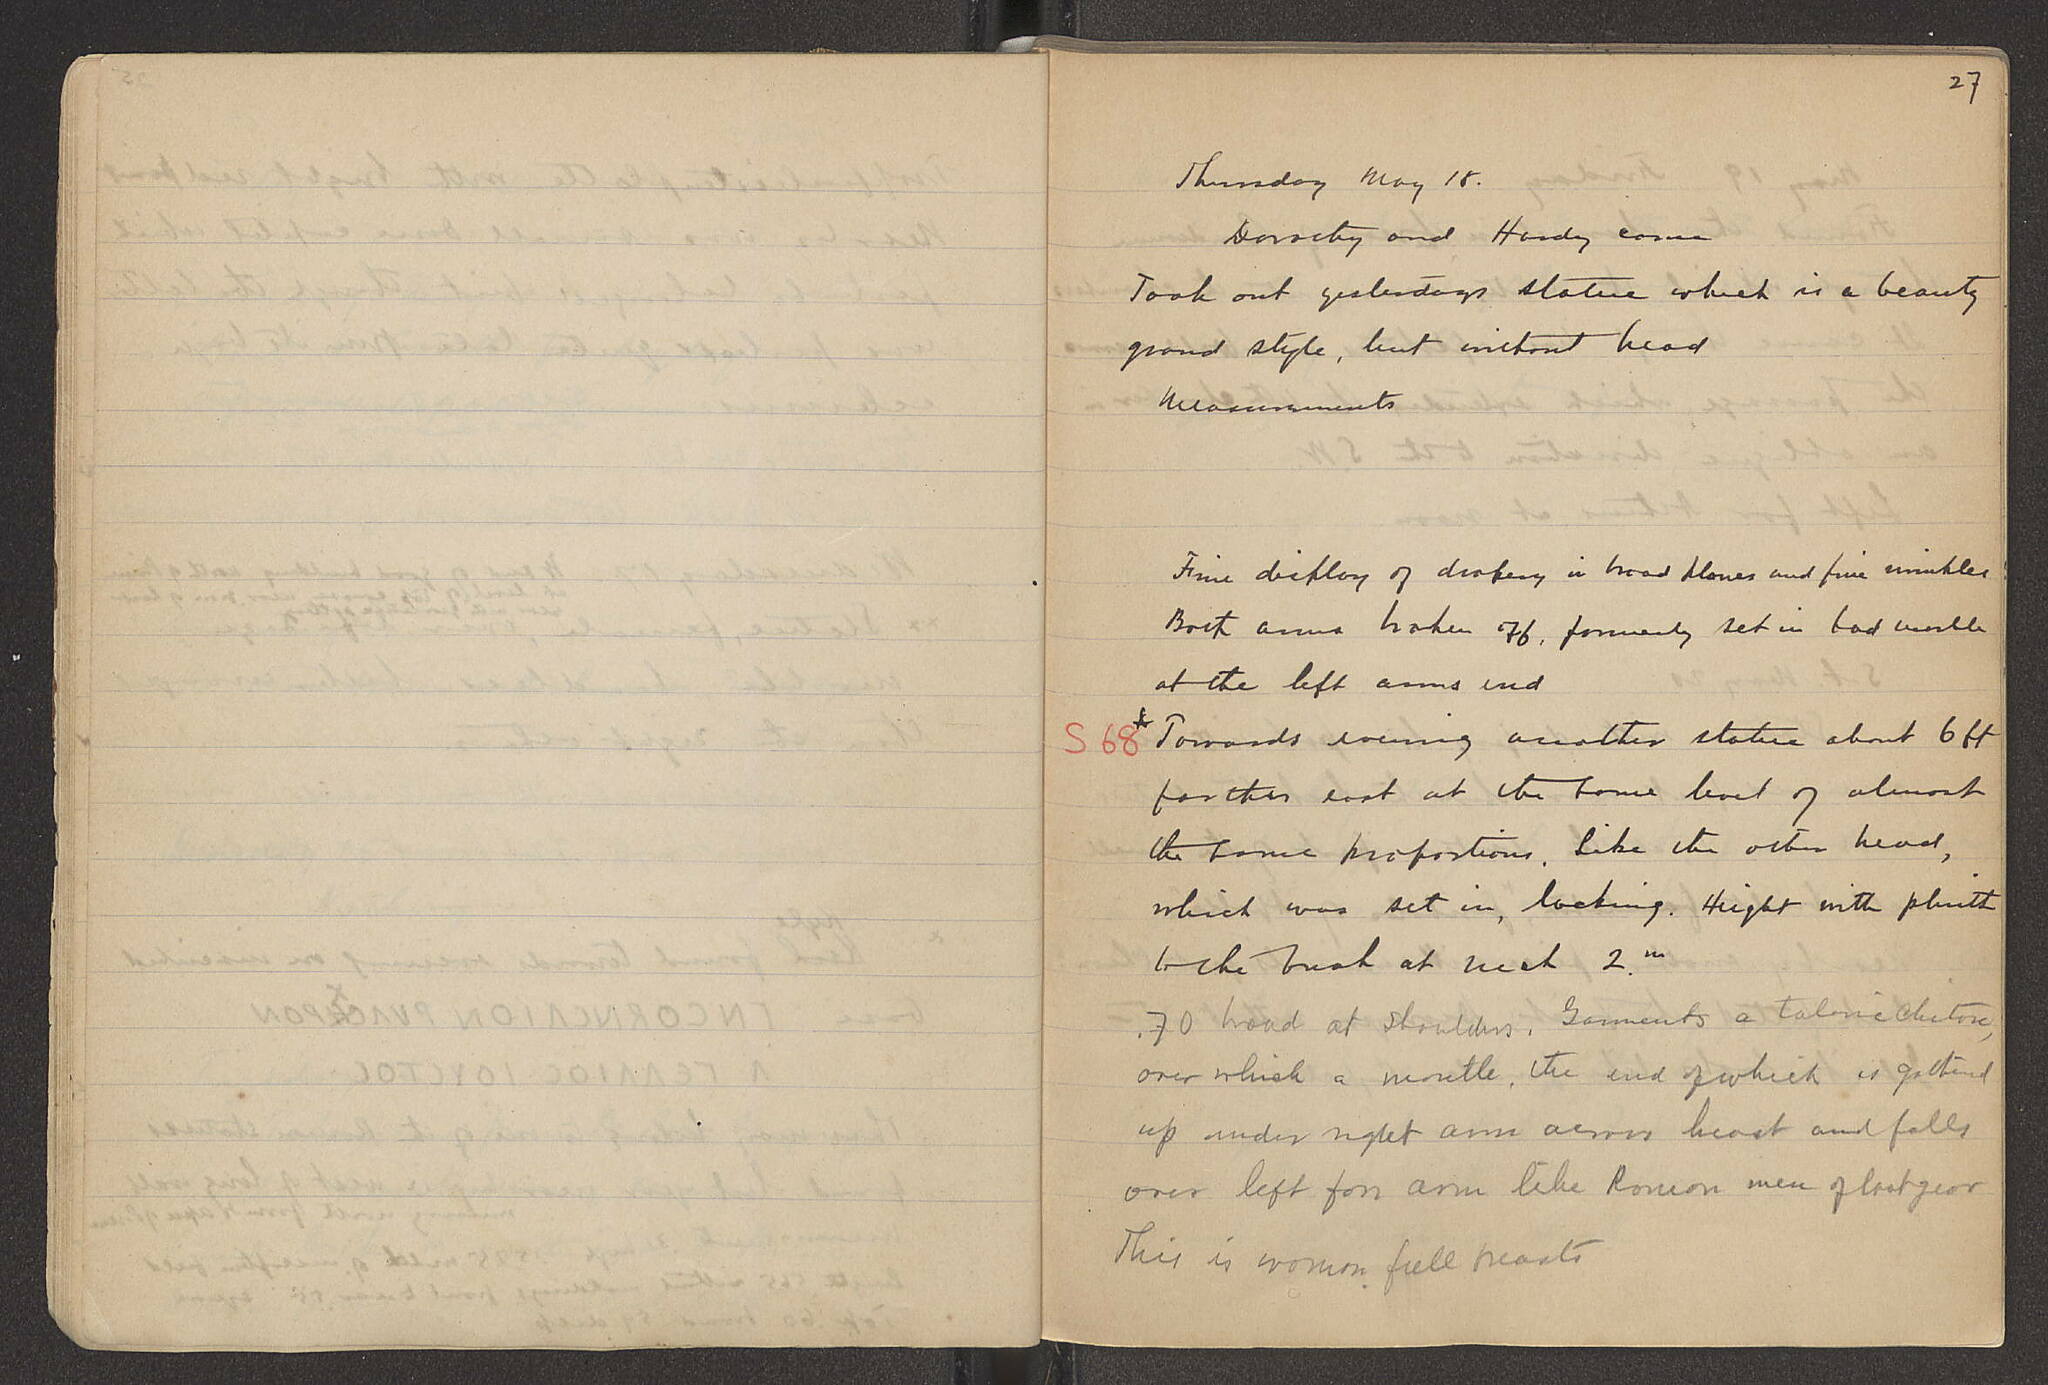 27
Thursday May 18.
Dorothy and Hardy came
Took out yesterdays statue which is a beauty
grand style, but without head
Measurements
Fine display of drapery in broad planes and fine wrinkles
Both arms broken off, formerly set in bad marble
at the left arms end
S 68 * Towards evening another statue about 6 ft
farther east at the same level of almost
the same proportions. Like the other head,
which was set in, lacking. Height with plinth
to the break at neck 2.m
.70 broad at shoulders. Garments a talaric chiton,
over which a mantle, the end of which is gathered
up under right arm across breast and falls
over left fore arm like Roman men of last year
This is woman full breasts